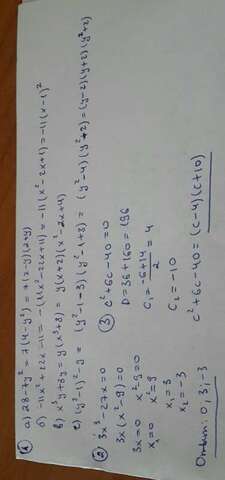 ① а) 28-7y² = 7(4-y²) = 7(2-y)(2+y)
б) -11x²+22x-11 = -(11x²-22x+11) = -11(x²-2x+1) = -11(x-1)²
в) x³y+8y = y(x³+8) = y(x+2)(x²-2x+4)
г) (y²-1)²-9 = (y²-1-3)(y²-1+3) = (y²-4)(y²+2) = (y-2)(y+2)(y²+2)
② 3x³-27x=0
3x(x²-9)=0
3x=0 x²-9=0
x₁=0 x²=9
x₁=3
x₂=-3
Ответ: 0; 3; -3
③ c²+6c-40=0
D=36+160=196
c₁ = -6+14/2 = 4
c₂ = -10
c²+6c-40 = (c-4)(c+10)